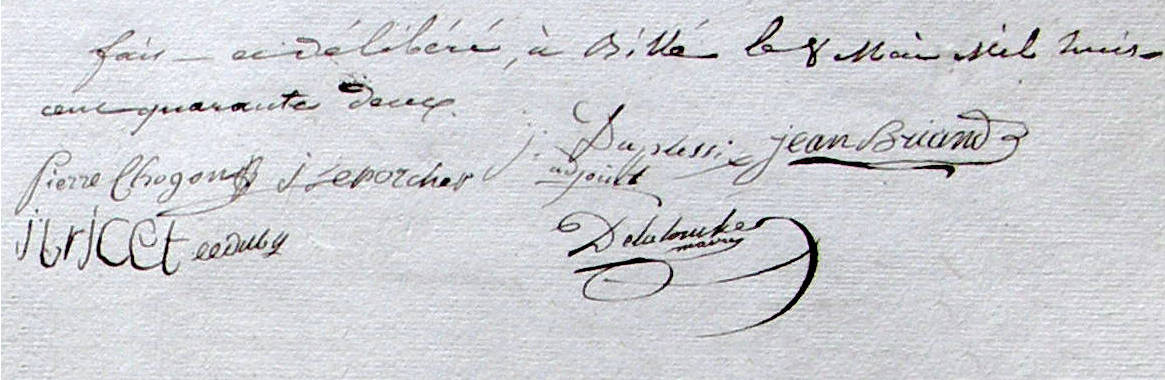 fait et délibéré, à Billé le 8 Mai Mil huit
cent quarante deux.
Duplessix jean Briand
adjoint
Pierre Chogon J Leporcher
Delatouche
maire